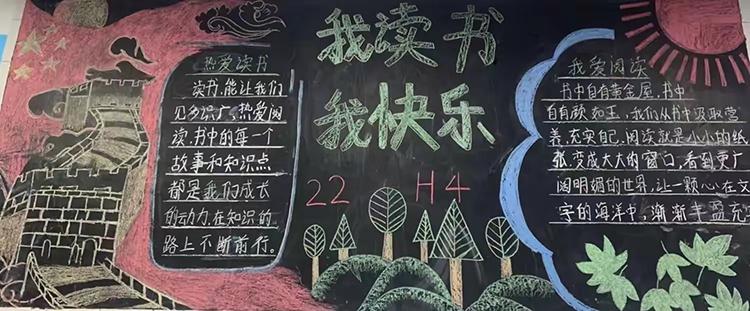 热爱读书
读书,能让我们
见多识广,热爱阅
读,书中的每一个
故事和知识点
都是我们成长
的动力,在知识的
路上不断前行。
我读书
我快乐
22 H4
我爱阅读
书中自有黄金屋,书中
自有颜如玉,我们从书中汲取营
养,充实自己,阅读就是小小的纸
张变成大大的窗口,看到更广
阔明媚的世界,让一颗心在文
字的海洋中,渐渐丰盈充